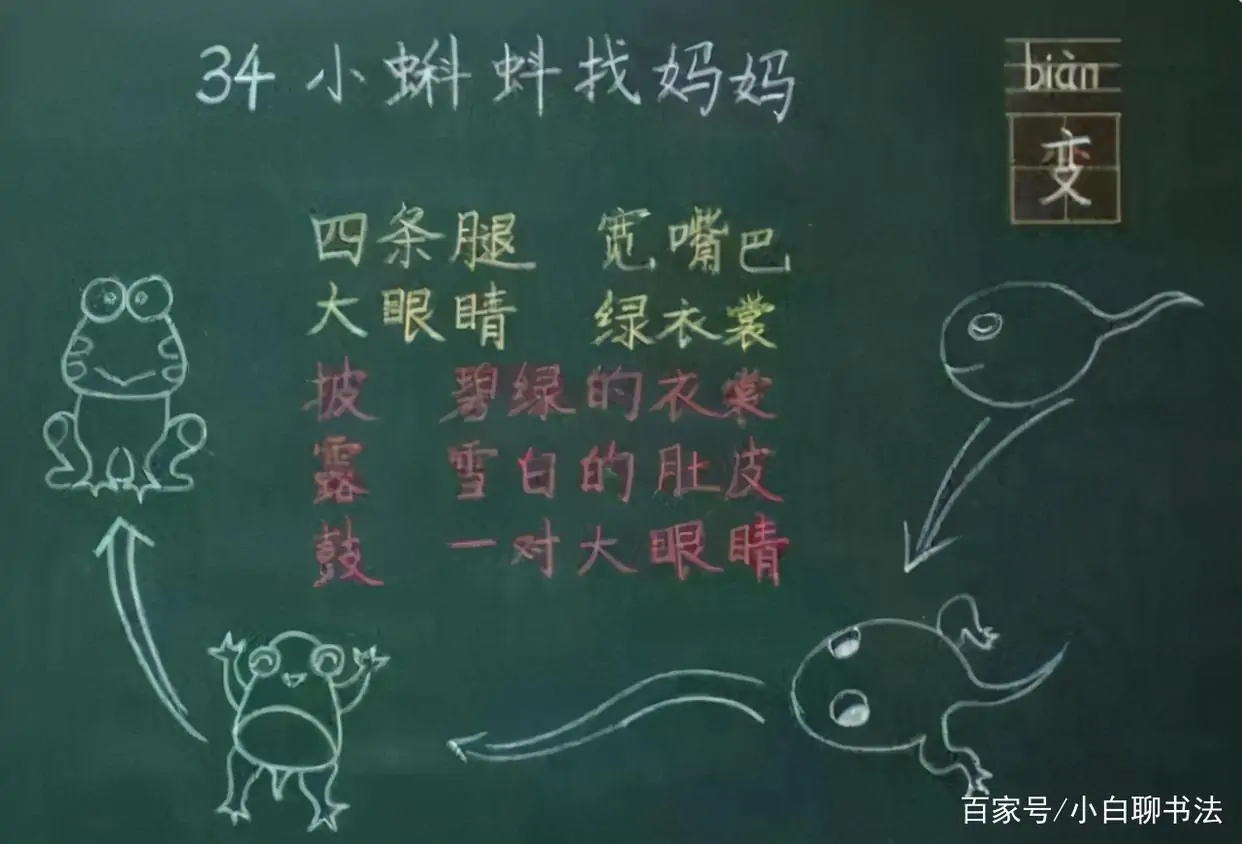 34 小蝌蚪找妈妈
biàn
变
四条腿 宽嘴巴
大眼睛 绿衣裳
披 碧绿的衣裳
露 雪白的肚皮
鼓 一对大眼睛
百家号/小白聊书法